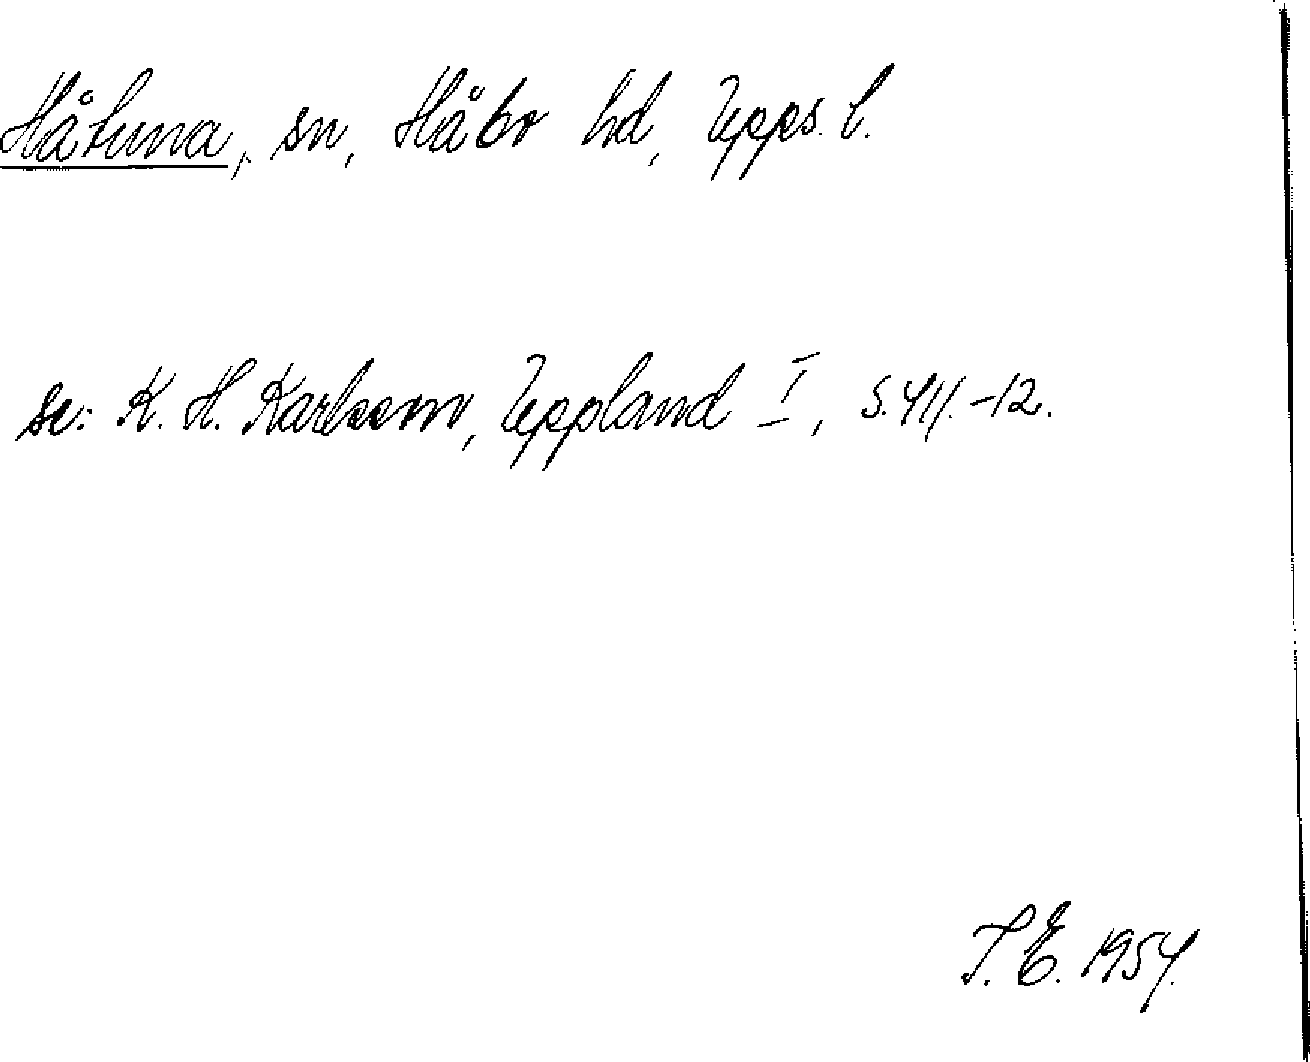 Håtuna, sn, Håbo hd, Upps. l.
se: K. H. Karlsson, Uppland I, s. 411.-12.
T. E. 1954.